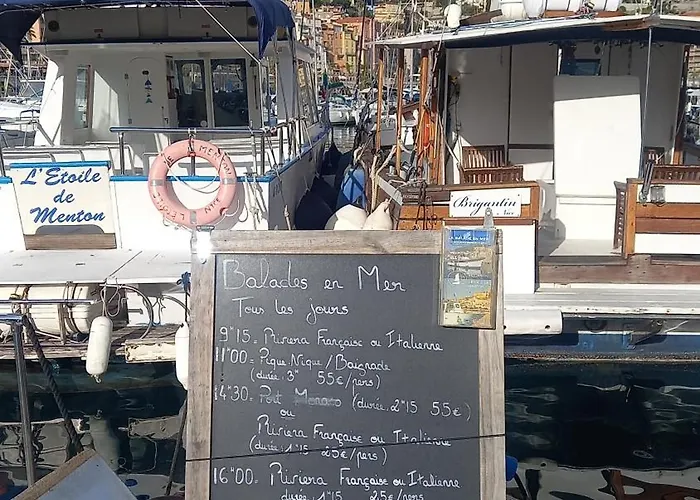 L'Étoile
de
Menton
Brigantin
Balades en Mer
Tous les jours
9"15 = Riviera Française ou Italienne
11"00 = Pique.Nique/Baignade
(durée: 3" 55€/pers)
14"30 = Port Monaco (durée: 2"15 55€)
ou
Riviera Française ou Italienne
(durée: 1"15 25€/pers)
16"00 = Riviera Française ou Italienne
durée: 1"15 25€/pers